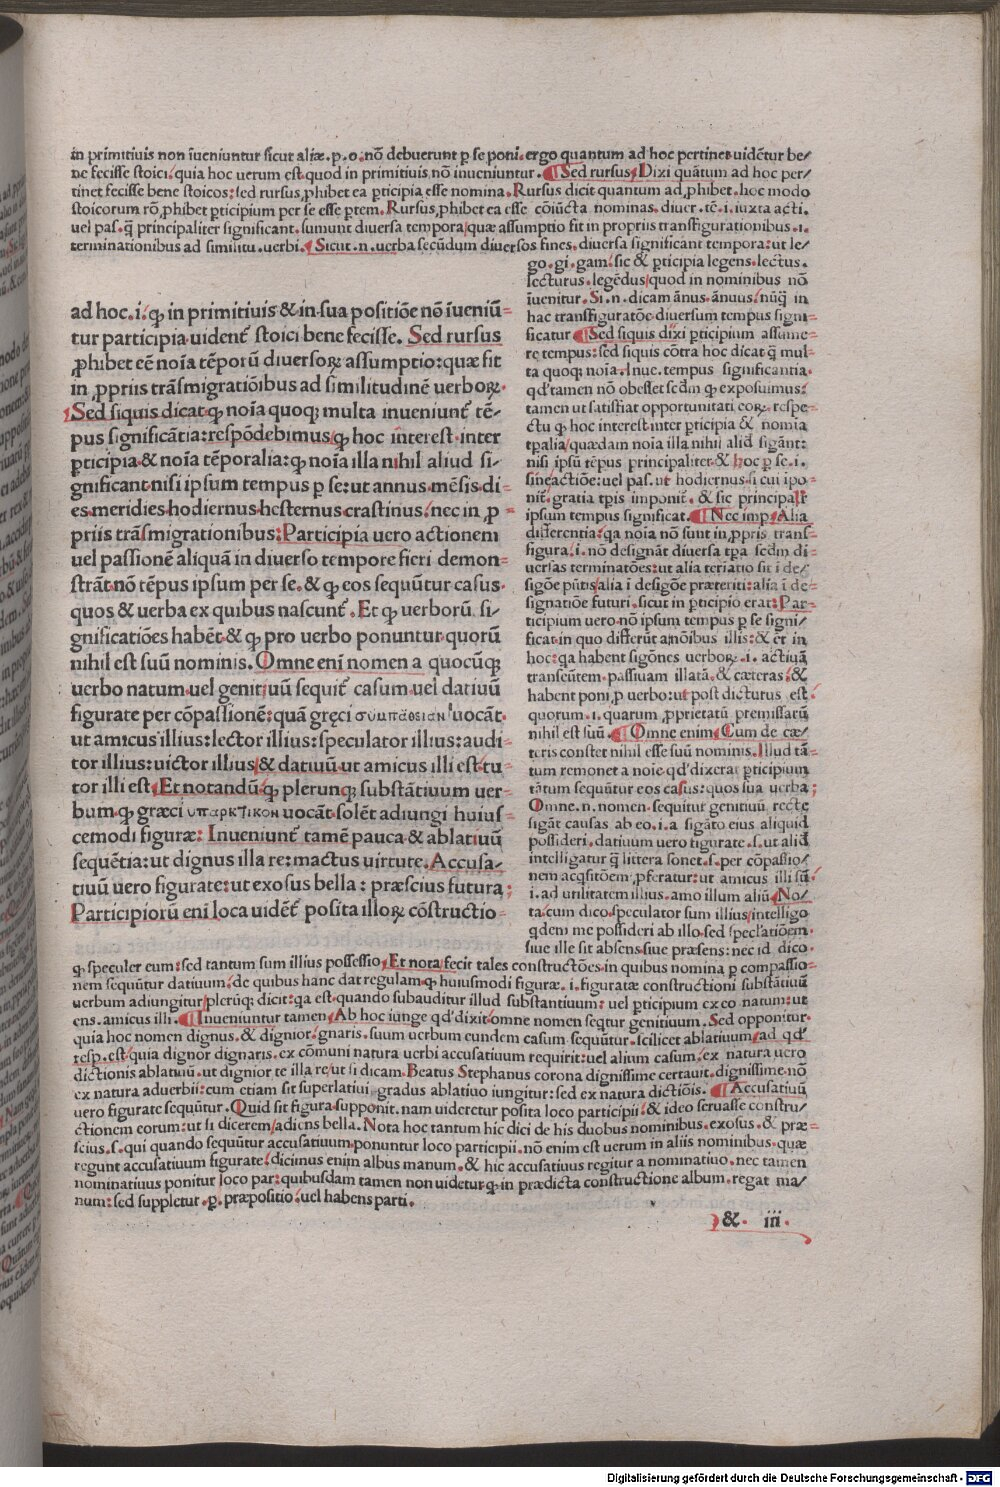 in primitiuis non īueniuntur sicut aliæ.p.o.nō debuerunt ꝑ se poni.ergo quantum ad hoc pertinet uidētur be/
ne fecisse stoici.quia hoc uerum est quod in primitiuis nō inueniuntur. Sed rursus Dixi quātum ad hoc per/
tinet fecisse bene stoicos:sed rursus ꝓhibet ea ꝑticipia esse nomina.Rursus dicit quantum ad ꝓhibet.hoc modo
stoicorum rō ꝓhibet ꝑticipium per se esse ꝑtem.Rursus ꝓhibet ea esse cōiūcta nominas.diuer.tē.i.iuxta acti.
uel pas.ꝗ principaliter significant.sumunt diuersa tempora/quæ assumptio fit in propriis transfigurationibus.i.
terminationibus ad similitu.uerbi. Sicut.n.uerba secūdum diuersos fines.diuersa significant tempora:ut le/
ad hoc.i.ꝙ in primitiuis & in sua positiōe nō īueniū-
tur participia uident᷑ stoici bene fecisse. Sed rursus
ꝓhibet eē noīa tēporū diuersoꝝ assumptio:quæ fit
in ꝓpriis trāsmigratiōibus ad similitudinē uerboꝝ.
Sed siquis dicat ꝙ noīa quoqꝫ multa inueniunt᷑ tē/
pus significātia:respōdebimus ꝙ hoc interest inter
ꝑticipia & noīa tēporalia:ꝙ noīa illa nihil aliud si/
gnificant nisi ipsum tempus ꝑ se:ut annus mēsis di-
es meridies hodiernus hesternus crastinus.nec in ꝓ
priis trāsmigrationibus:Participia uero actionem
uel passionē aliquā in diuerso tempore fieri demon-
strāt nō tēpus ipsum per se.& ꝙ eos sequūtur casus
quos & uerba ex quibus nascunt᷑.Et ꝙ uerborū si/
gnificatiōes habēt & ꝙ pro uerbo ponuntur quorū
nihil est suū nominis.Omne eni nomen a quocūqꝫ
uerbo natum uel genitiuū sequit᷑ casum uel datiuū
figurate per cōpassionē:quā gręci συμπάθειαν uocāt
ut amicus illius:lector illius:speculator illius:audi-
tor illius:uictor illius/& datiuū ut amicus illi est tu-
tor illi est Et notandū ꝙ plerunqꝫ substātiuum uer-
bum ꝙ græci υπαρκτικον uocāt solēt adiungi huius-
cemodi figuræ: Inueniunt᷑ tamē pauca & ablatiuū
sequētia:ut dignus illa re:mactus uirtute.Accusa/
tiuū uero figurate:ut exosus bella: præscius futura;
Participiorū eni loca uidēt᷑ posita illoꝝ cōstructio-
go.gi.gam.sic & ꝑticipia legens.lectus.
lecturus.legēdus/quod in nominibus nō
īuenitur.Si.n.dicam ānus.ānuus.nūꝗ in
hac transfiguratōe diuersum tempus signi-
ficatur Sed siquis dixi ꝑticipium assume-
re tempus:sed siquis cōtra hoc dicat ꝙ mul-
ta quoqꝫ noīa.Inue.tempus significantia.
qd' tamen nō obesset sedm ꝙ exposuimus:
tamen ut satisfiat opportunitati eoꝝ.respe-
ctu ꝙ hoc interest inter ꝑticipia & nomīa
tꝑalia/quædam noīa illa nihil aliđ sigāt:
nisi ipsū tēpus principalitet & hoc ꝑ se.i.
sine actiōe:uel pas.ut hodiernus si cui ipo-
nit᷑.gratia tꝑis imponit᷑.& sic principalr
ipsum tempus significat. Nec imp Alia
differentia:qa noīa nō sunt in ꝓpris trans-
figura.i.nō designāt diuersa tꝑa sedm di-
uersas terminatōes:ut alia teriatio sit ī de-
sigōe pn̄tis/alia ī desigōe præteriti:alia ī de-
signatiōe futuri.sicut in ꝑticipio erat:Par-
ticipium uero nō ipsum tempus ꝑ se signi/
ficat in quo differūt a nōibus illis:& et in
hoc:qa habent sigōnes uerboꝝ.i.actiuā
transeūtem.passiuam illatā.& cæteras:&
habent poni ꝓ uerbo:ut post dicturus est.
quorum.i.quarum ꝓprietatū premissarū
nihil est suū. Omne enim Cum de cæ-
teris constet nihil esse suū nominis.Illud tā-
tum remonet a noie qd' dixerat ꝑticipium
tātum sequūtur eos casus:quos sua uerba;
Omne.n.nomen sequitur genitiuū recte
sigāt causas ab eo.i.a sigāto eius aliquid
possideri.datiuum uero figurate.s.ut aliđ
intelligatur ꝗ littera sonet.s.per cōpassio/
nem acqsitōem ꝓferatur:ut amicus illi sū
i.ad utilitatem illius.amo illum aliū No/
ta:cum dico speculator sum illius/intelligo
qdem me possideri ab illo.sed speculationem
siue ille sit absens siue præsens:nec id dico.
ꝙ speculer eum:sed tantum sum illius possessio Et nota fecit tales constructōes in quibus nomina ꝑ compassio-
nem sequūtur datiuum.de quibus hanc dat regulam ꝙ huiusmodi figuræ.i.figuratæ constructioni substātiuū
uerbum adiungitur/plerūqꝫ dicit:qa est quando subauditur illud substantiuum: uel ꝑticipium ex eo natum:ut
ens.amicus illi. Inueniuntur tamen Ab hoc iunge qd' dixit omne nomen seqtur genitiuum.Sed opponitur.
quia hoc nomen dignus.& dignior.gnaris.suum uerbum eundem casum sequūtur.scilicet ablatiuum/ad qd'
resp.est quia dignor dignaris.ex cōmuni natura uerbi accusatiuum requirit:uel alium casum.ex natura uero
dictionis ablatiuū.ut dignior te illa re/ut si dicam.Beatus Stephanus corona dignissime certauit.dignissime nō
ex natura aduerbii:cum etiam sit superlatiui gradus ablatiuo iungitur:sed ex natura dictiōis. Accusatiuū
uero figurate sequūtur.Quid sit figura supponit.nam uideretur posita loco participii.& ideo seruasse constru/
ctionem eorum:ut si dicerem/adiens bella.Nota hoc tantum hic dici de his duobus nominibus.exosus.& præ-
scius.s.qui quando sequūtur accusatiuum ponuntur loco participii.nō enim est uerum in aliis nominibus quæ
regunt accusatiuum figurate.dicimus enim albus manum.& hic accusatiuus regitur a nominatiuo.nec tamen
nominatiuus ponitur loco par:quibusdam tamen non uidetur ꝙ in prædicta constructione album.regat ma/
num:sed suppletur.ꝑ.præpositio.uel habens parti.
&. iii.
Digitalisierung gefördert durch die Deutsche Forschungsgemeinschaft - DFG